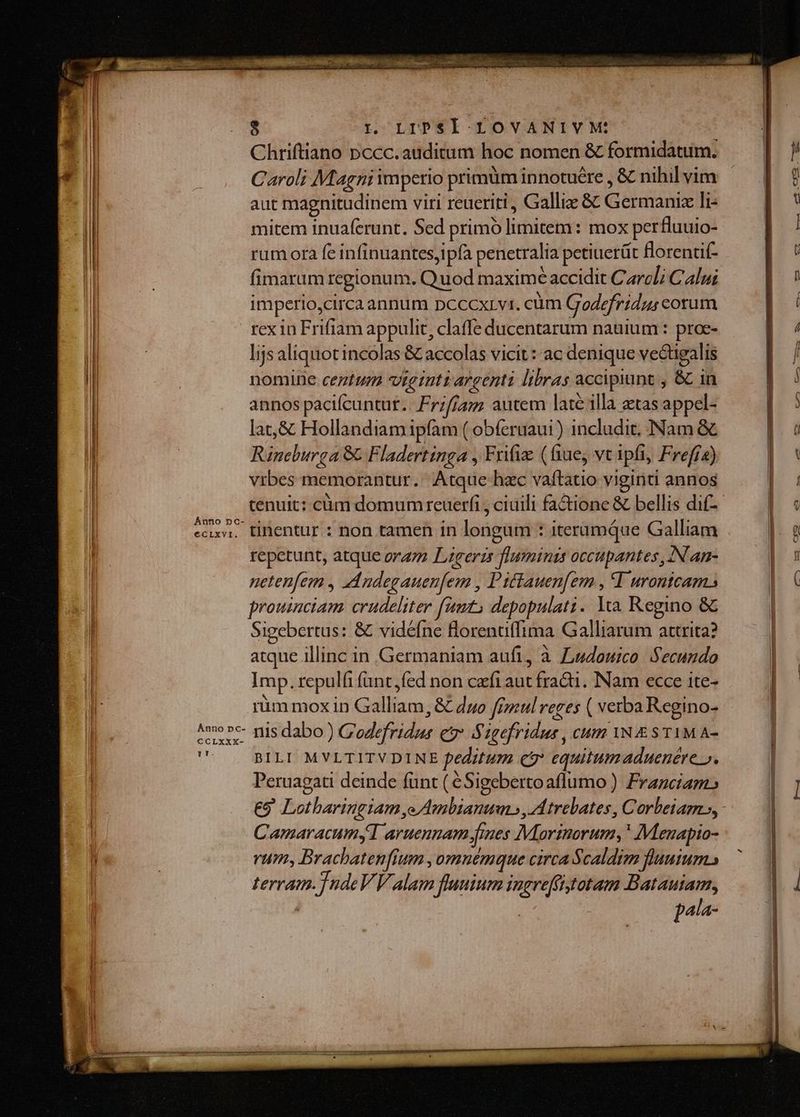 8 I. LIPSI LOVANIVM:
Chriſtiano DCCC. auditum hoc nomen & formidatum.
Caroli Magni imperio primùm innotuêre, & nihil vim
aut magnitudinem viri reueriti, Galliæ & Germaniæ li-
mitem inuaſerunt. Sed primò limitem: mox per fluuio-
rum ora ſe inſinuantes, ipſa penetralia petiuerũt florentiſ-
ſimarum regionum. Quod maximè accidit Caroli Calui
imperio, circa annum DCCCXLVI. cùm Godefridus eorum
rex in Friſiam appulit, claſſe ducentarum nauium: prœ-
lijs aliquot incolas & accolas vicit: ac denique vectigalis
nomine centum viginti argenti libras accipiunt, & in
annos paciſcuntur. Friſiam autem latè illa ætas appel-
lat, & Hollandiam ipſam (obſeruaui) includit. Nam &
Rineburga & Fladertinga, Friſiæ (ſiue, vt ipſi, Freſiæ)
vrbes memorantur. Atque hæc vaſtatio viginti annos
tenuit: cùm domum reuerſi, ciuili factione & bellis diſ-
Anno DC-
CCLXVI.
tinentur: non tamen in longum: iterumque Galliam
repetunt, atque oram Ligeris fluminis occupantes, Nan-
netenſem, Andegauenſem, Pictauenſem, Turonicam
prouinciam crudeliter ſunt depopulati. Ita Regino &
Sigebertus: & vidéſne florentiſſima Galliarum attrita?
atque illinc in Germaniam auſi, à Ludouico Secundo
Imp. repulſi ſunt, ſed non cæſi aut fracti. Nam ecce ite-
rùm mox in Galliam, & duo ſimul reges (verba Regino-
Anno DC-
CCLXXX-
II.
nis dabo) Godefridus & Sigefridus, cum INÆSTIMA-
BILI MVLTITVDINE peditum & equitum aduenére.
Peruagati deinde ſunt (è Sigeberto aſſumo) Franciam
& Lotharingiam, Ambianum, Atrebates, Corbeiam,
Camaracum, Taruennam, fines Morinorum, Menapio-
rum, Brachatenſium, omnémque circa Scaldim fluuium
terram. Inde VValam fluuium ingreſſi, totam Batauiam,
pala-